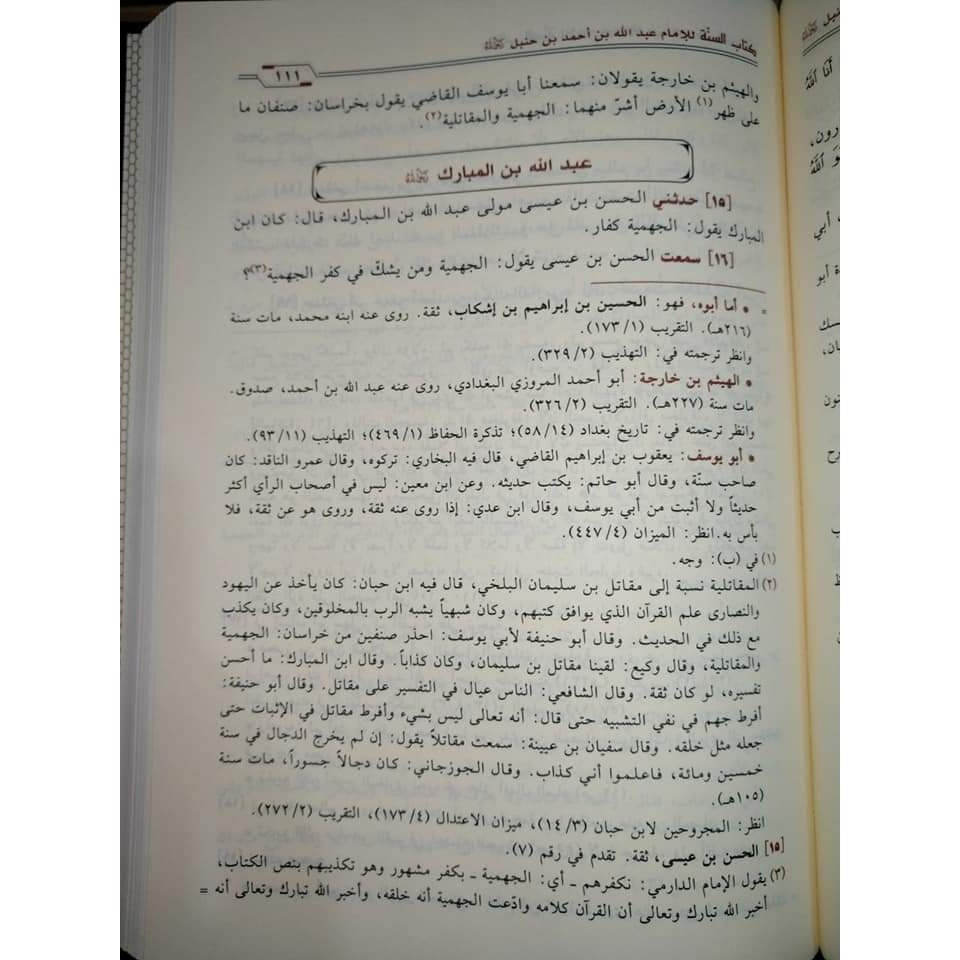 كتاب السنّة للإمام عبد الله بن أحمد بن حنبل
١١١
والهيثم بن خارجة يقولان: سمعنا أبا يوسف القاضي يقول بخراسان: صنفان ما
على ظهر(١) الأرض أشرّ منهما: الجهمية والمقاتلية(٢).
عبد الله بن المبارك
[١٥] حدثني الحسن بن عيسى مولى عبد الله بن المبارك، قال: كان ابن
المبارك يقول: الجهمية كفار.
[١٦] سمعت الحسن بن عيسى يقول: الجهمية ومن يشكّ في كفر الجهمية(٣)؟
= • أما أبوه، فهو: الحسين بن إبراهيم بن إشكاب، ثقة. روى عنه ابنه محمد، مات سنة
(٢١٦هـ). التقريب (١/١٧٣).
وانظر ترجمته في: التهذيب (٢/٣٢٩).
• الهيثم بن خارجة: أبو أحمد المروزي البغدادي، روى عنه عبد الله بن أحمد، صدوق.
مات سنة (٢٢٧هـ). التقريب (٢/٣٢٦).
وانظر ترجمته في: تاريخ بغداد (١٤/٥٨)؛ تذكرة الحفاظ (١/٤٦٩)؛ التهذيب (١١/٩٣).
• أبو يوسف: يعقوب بن إبراهيم القاضي، قال فيه البخاري: تركوه، وقال عمرو الناقد: كان
صاحب سنّة، وقال أبو حاتم: يكتب حديثه. وعن ابن معين: ليس في أصحاب الرأي أكثر
حديثاً ولا أثبت من أبي يوسف، وقال ابن عدي: إذا روى عنه ثقة، وروى هو عن ثقة، فلا
بأس به.انظر: الميزان (٤/٤٤٧).
(١) في (ب): وجه.
(٢) المقاتلية نسبة إلى مقاتل بن سليمان البلخي، قال فيه ابن حبان: كان يأخذ عن اليهود
والنصارى علم القرآن الذي يوافق كتبهم، وكان شبهياً يشبه الرب بالمخلوقين، وكان يكذب
مع ذلك في الحديث. وقال أبو حنيفة لأبي يوسف: احذر صنفين من خراسان: الجهمية
والمقاتلية، وقال وكيع: لقينا مقاتل بن سليمان، وكان كذاباً. وقال ابن المبارك: ما أحسن
تفسيره، لو كان ثقة. وقال الشافعي: الناس عيال في التفسير على مقاتل. وقال أبو حنيفة:
أفرط جهم في نفي التشبيه حتى قال: أنه تعالى ليس بشيء وأفرط مقاتل في الإثبات حتى
جعله مثل خلقه. وقال سفيان بن عيينة: سمعت مقاتلاً يقول: إن لم يخرج الدجال في سنة
خمسين ومائة، فاعلموا أني كذاب. وقال الجوزجاني: كان دجالاً جسوراً، مات سنة
(١٠٥هـ).
انظر: المجروحين لابن حبان (٣/١٤)، ميزان الاعتدال (٤/١٧٣)، التقريب (٢/٢٧٢).
[١٥] الحسن بن عيسى، ثقة. تقدم في رقم (٧).
(٣) يقول الإمام الدارمي: نكفرهم ـ أي: الجهمية ـ بكفر مشهور وهو تكذيبهم بنص الكتاب،
أخبر الله تبارك وتعالى أن القرآن كلامه وادّعت الجهمية أنه خلقه، وأخبر الله تبارك وتعالى أنه =